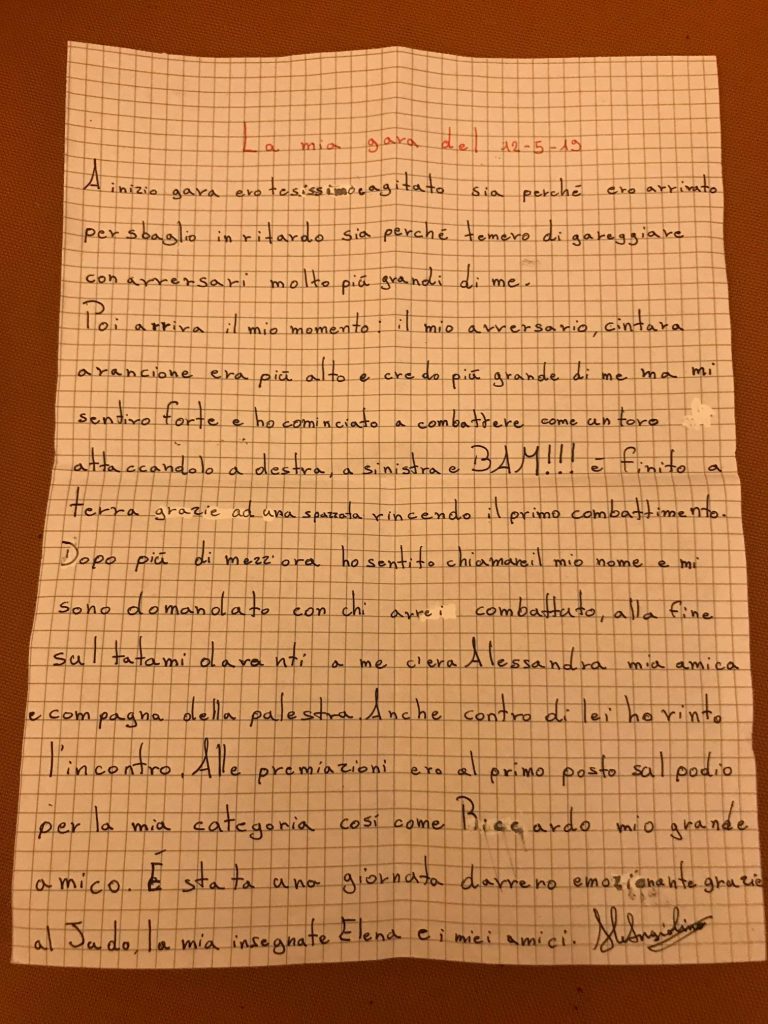 La mia gara del 12-5-19
A inizio gara ero tesissimo e agitato sia perché ero arrivato
per sbaglio in ritardo sia perché temevo di gareggiare
con avversari molto più grandi di me.
Poi arriva il mio momento: il mio avversario, cintura
arancione era più alto e credo più grande di me ma mi
sentivo forte e ho cominciato a combattere come un toro
attaccandolo a destra, a sinistra e BAM!!! è finito a
terra grazie ad una spazzata vincendo il primo combattimento.
Dopo più di mezz'ora ho sentito chiamare il mio nome e mi
sono domandato con chi avrei combattuto, alla fine
sul tatami davanti a me c'era Alessandra mia amica
e compagna della palestra. Anche contro di lei ho vinto
l'incontro. Alle premiazioni ero al primo posto sul podio
per la mia categoria così come Riccardo mio grande
amico. È stata una giornata davvero emozionante grazie
al Judo, la mia insegnate Elena e i miei amici.